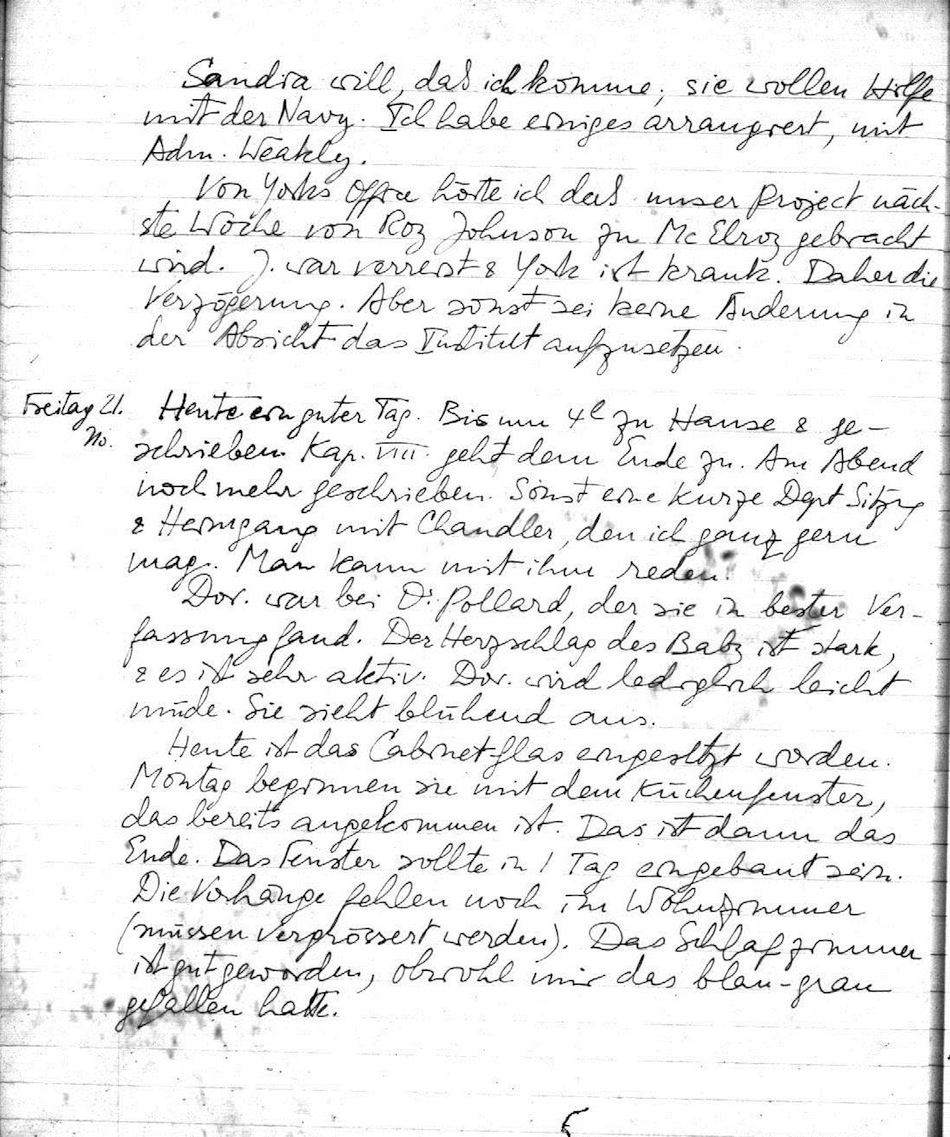 Sandia will, daß ich komme; sie wollen Hilfe
mit der Navy. Ich habe einiges arrangiert, mit
Adm. Weakley.
Von Yorks Office hörte ich daß unser Project näch-
ste Woche von Roy Johnson zu McElroy gebracht
wird. J. war verreist & York ist krank. Daher die
Verzögerung. Aber sonst sei keine Änderung in
der Absicht das Institut aufzusetzen.
Freitag 21. Heute ein guter Tag. Bis um 4h zu Hause & ge-
No. schrieben. Kap. VIII. geht dem Ende zu. Am Abend
noch mehr geschrieben. Sonst eine kurze Dept Sitzg
& Heimgang mit Chandler, den ich ganz gern
mag. Man kann mit ihm reden.
Dor. war bei Dr Pollard, der sie in bester Ver-
fassung fand. Der Herzschlag des Baby ist stark,
& es ist sehr aktiv. Dor. wird lediglich leicht
müde. Sie sieht blühend aus.
Heute ist das Cabinet-glas eingesetzt worden.
Montag beginnen sie mit dem Küchenfenster,
das bereits angekommen ist. Das ist dann das
Ende. Das Fenster sollte in 1 Tag eingebaut sein.
Die Vorhänge fehlen noch im Wohnzimmer
(müssen vergrössert werden). Das Schlafzimmer
ist gut geworden, obwohl mir das blau-grau
gefallen hatte.